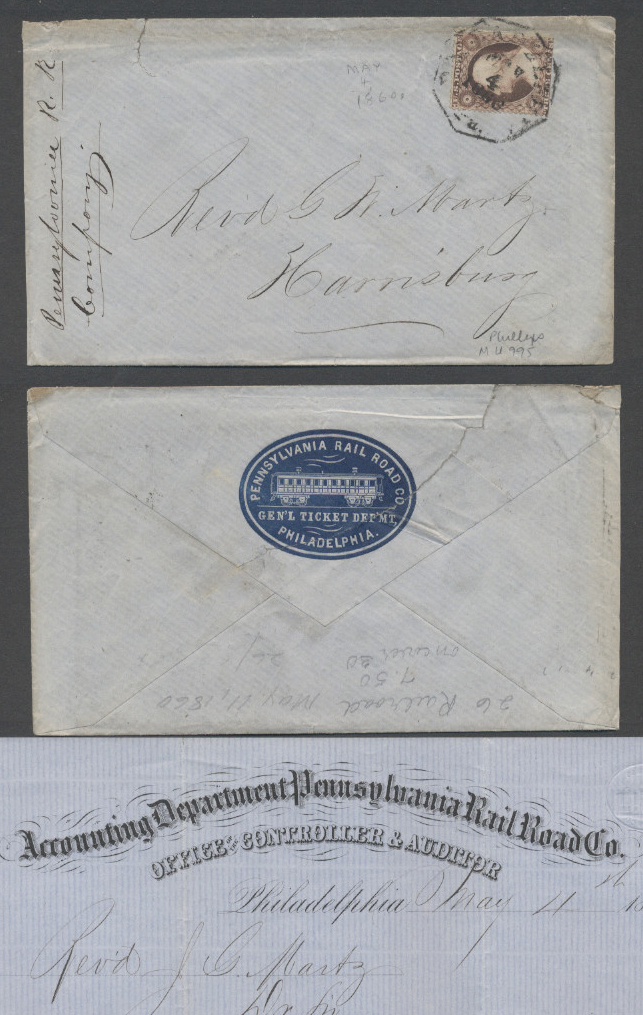 Pennsylvania R. R.
Company
MAY
4
1860
MAY
4
Rev'd G W. Martz
Harrisburg
Phillips
M U 995
PENNSYLVANIA RAIL ROAD CO
GEN'L TICKET DEP'MT,
PHILADELPHIA.
on cover 20
7.50
26 Railroad May 11, 1860
Accounting Department Pennsylvania Rail Road Co.
OFFICE OF THE CONTROLLER & AUDITOR
Philadelphia May 4th 18
Rev'd J G. Martz
Dr Sir